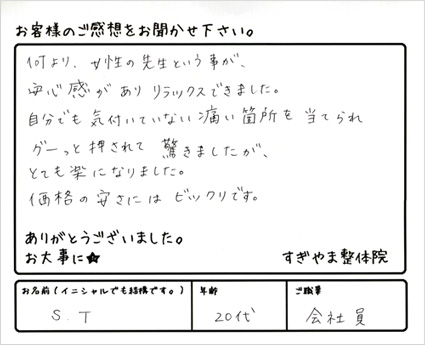 お客様のご感想をお聞かせ下さい。
何より、女性の先生という事が、
安心感がありリラックスできました。
自分でも気付いていない痛い箇所を当てられ
グーっと押されて驚きましたが、
とても楽になりました。
価格の安さにはビックリです。
ありがとうございました。
お大事に★ すぎやま整体院
お名前(イニシャルでも結構です。) 年齢 ご職業
S.T 20代 会社員